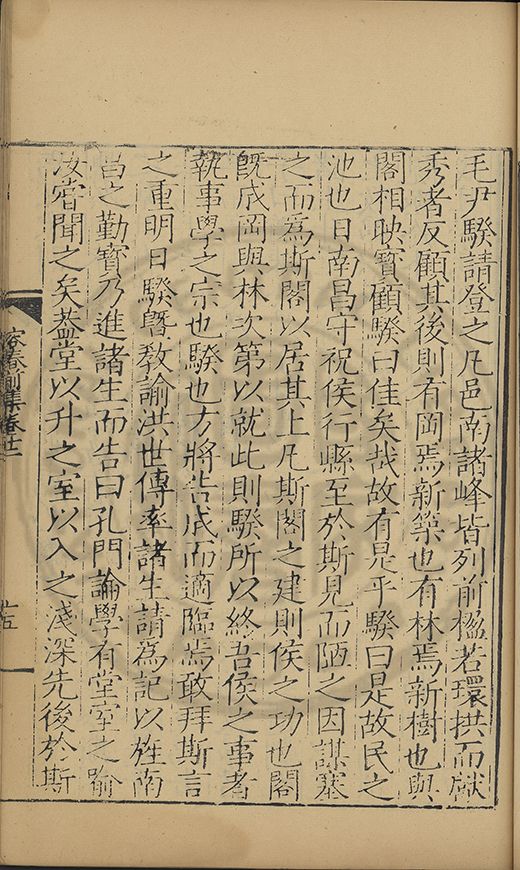 毛尹騤請登之凡邑南諸峰皆列前楹若環拱而獻
秀者反顧其後則有岡焉新築也有林焉新樹也與
閣相映寳顧騤曰佳矣哉故有是乎騤曰是故民之
池也日南昌守祝侯行縣至於斯見而陋之因謀塞
之而為斯閣以居其上凡斯閣之建則侯之功也閣
旣成岡與林次第以就此則騤所以終吾侯之事者
執事學之宗也騤也方將告成而適臨焉敢拜斯言
之重明日騤曁敎諭洪世傳率諸生請為記以旌南
昌之勤寳乃進諸生而告曰孔門論學有堂室之喻
汝嘗聞之矣葢堂以升之室以入之淺深先後於斯
容春别集卷七
十五